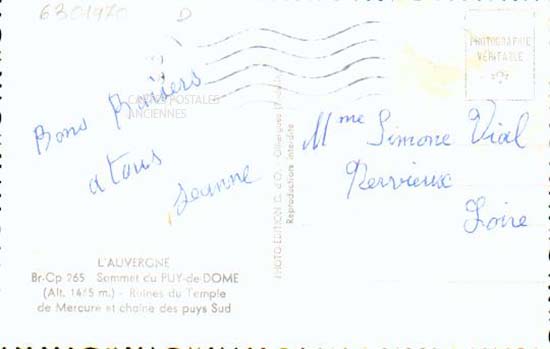 6301970 D
PHOTOGRAPHIE
VÉRITABLE
CARTES POSTALES
ANCIENNES
Bons Baisers
a tous
Jeanne
Mme Simone Vial
Nervieux
Loire
PHOTO-EDITION C. d'O. Olliergues (P.-de-D.)
Reproductions interdite
L'AUVERGNE
Br-Cp 265 Sommet du PUY-de-DOME
(Alt. 1465 m.) - Ruines du Temple
de Mercure et chaîne des puys Sud